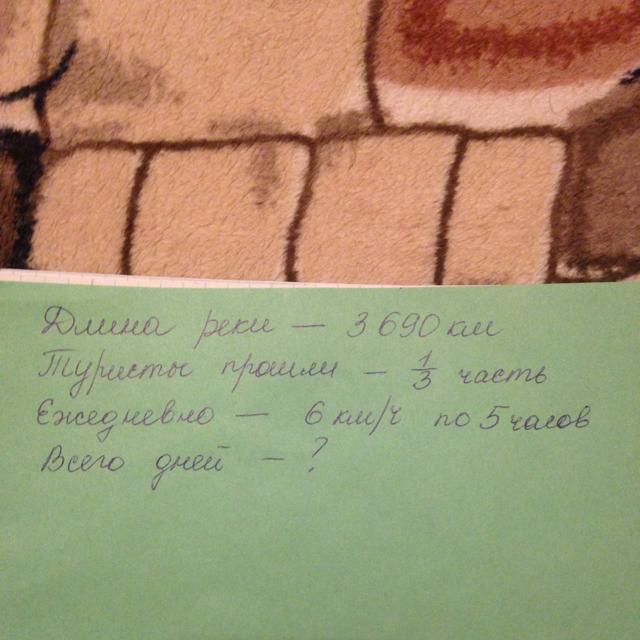 Длина реки – 3 690 км
Туристы прошли – 1/3 часть
Ежедневно – 6 км/ч по 5 часов
Всего дней – ?